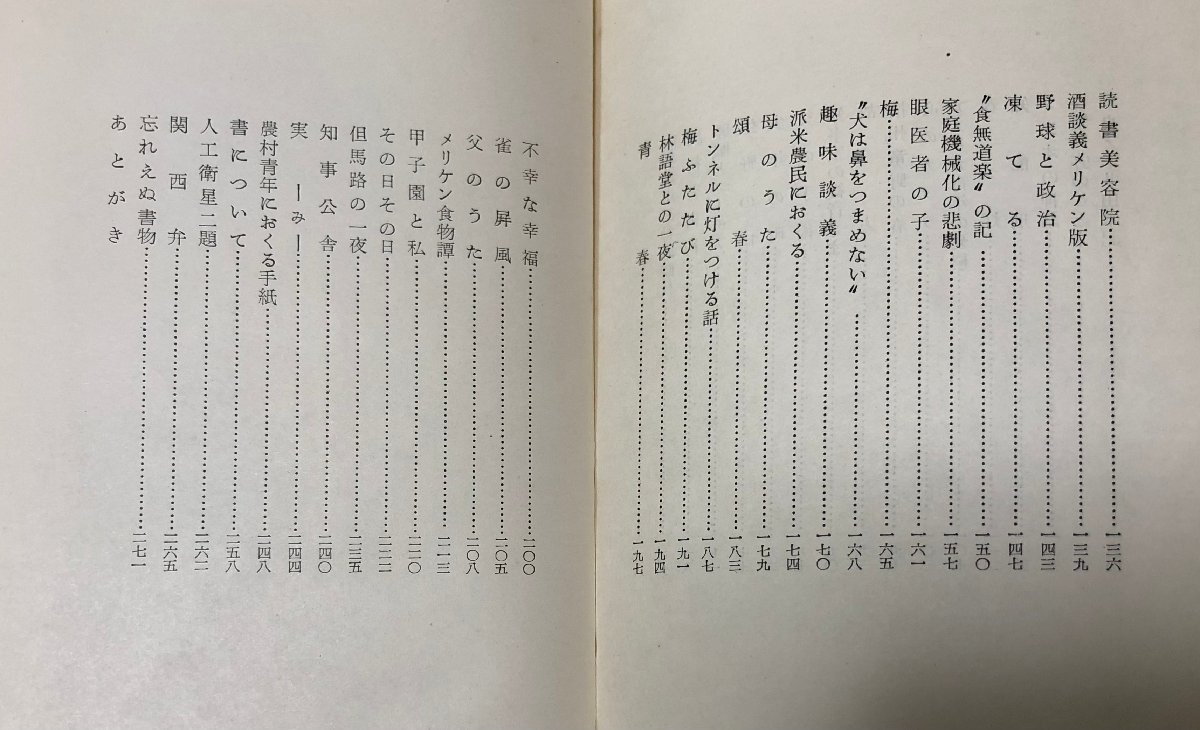 読書美容院……一三六
酒談義メリケン版……一三九
野球と政治……一四三
凍てる……一四七
〝食無道楽〟の記……一五〇
家庭機械化の悲劇……一五七
眼医者の子……一六一
梅……一六五
〝犬は鼻をつまめない〟……一六八
趣味談義……一七〇
派米農民におくる……一七四
母のうた……一七九
頌春……一八三
トンネルに灯をつける話……一八七
梅ふたたび……一九一
林語堂との一夜……一九四
青春……一九七
不幸な幸福……二〇〇
雀の屏風……二〇五
父のうた……二〇八
メリケン食物譚……二一三
甲子園と私……二二〇
その日その日……二二二
但馬路の一夜……二三五
知事公舎……二四〇
実―み―……二四四
農村青年におくる手紙……二四八
書について……二五八
人工衛星二題……二六二
関西弁……二六五
忘れえぬ書物……二七一
あとがき